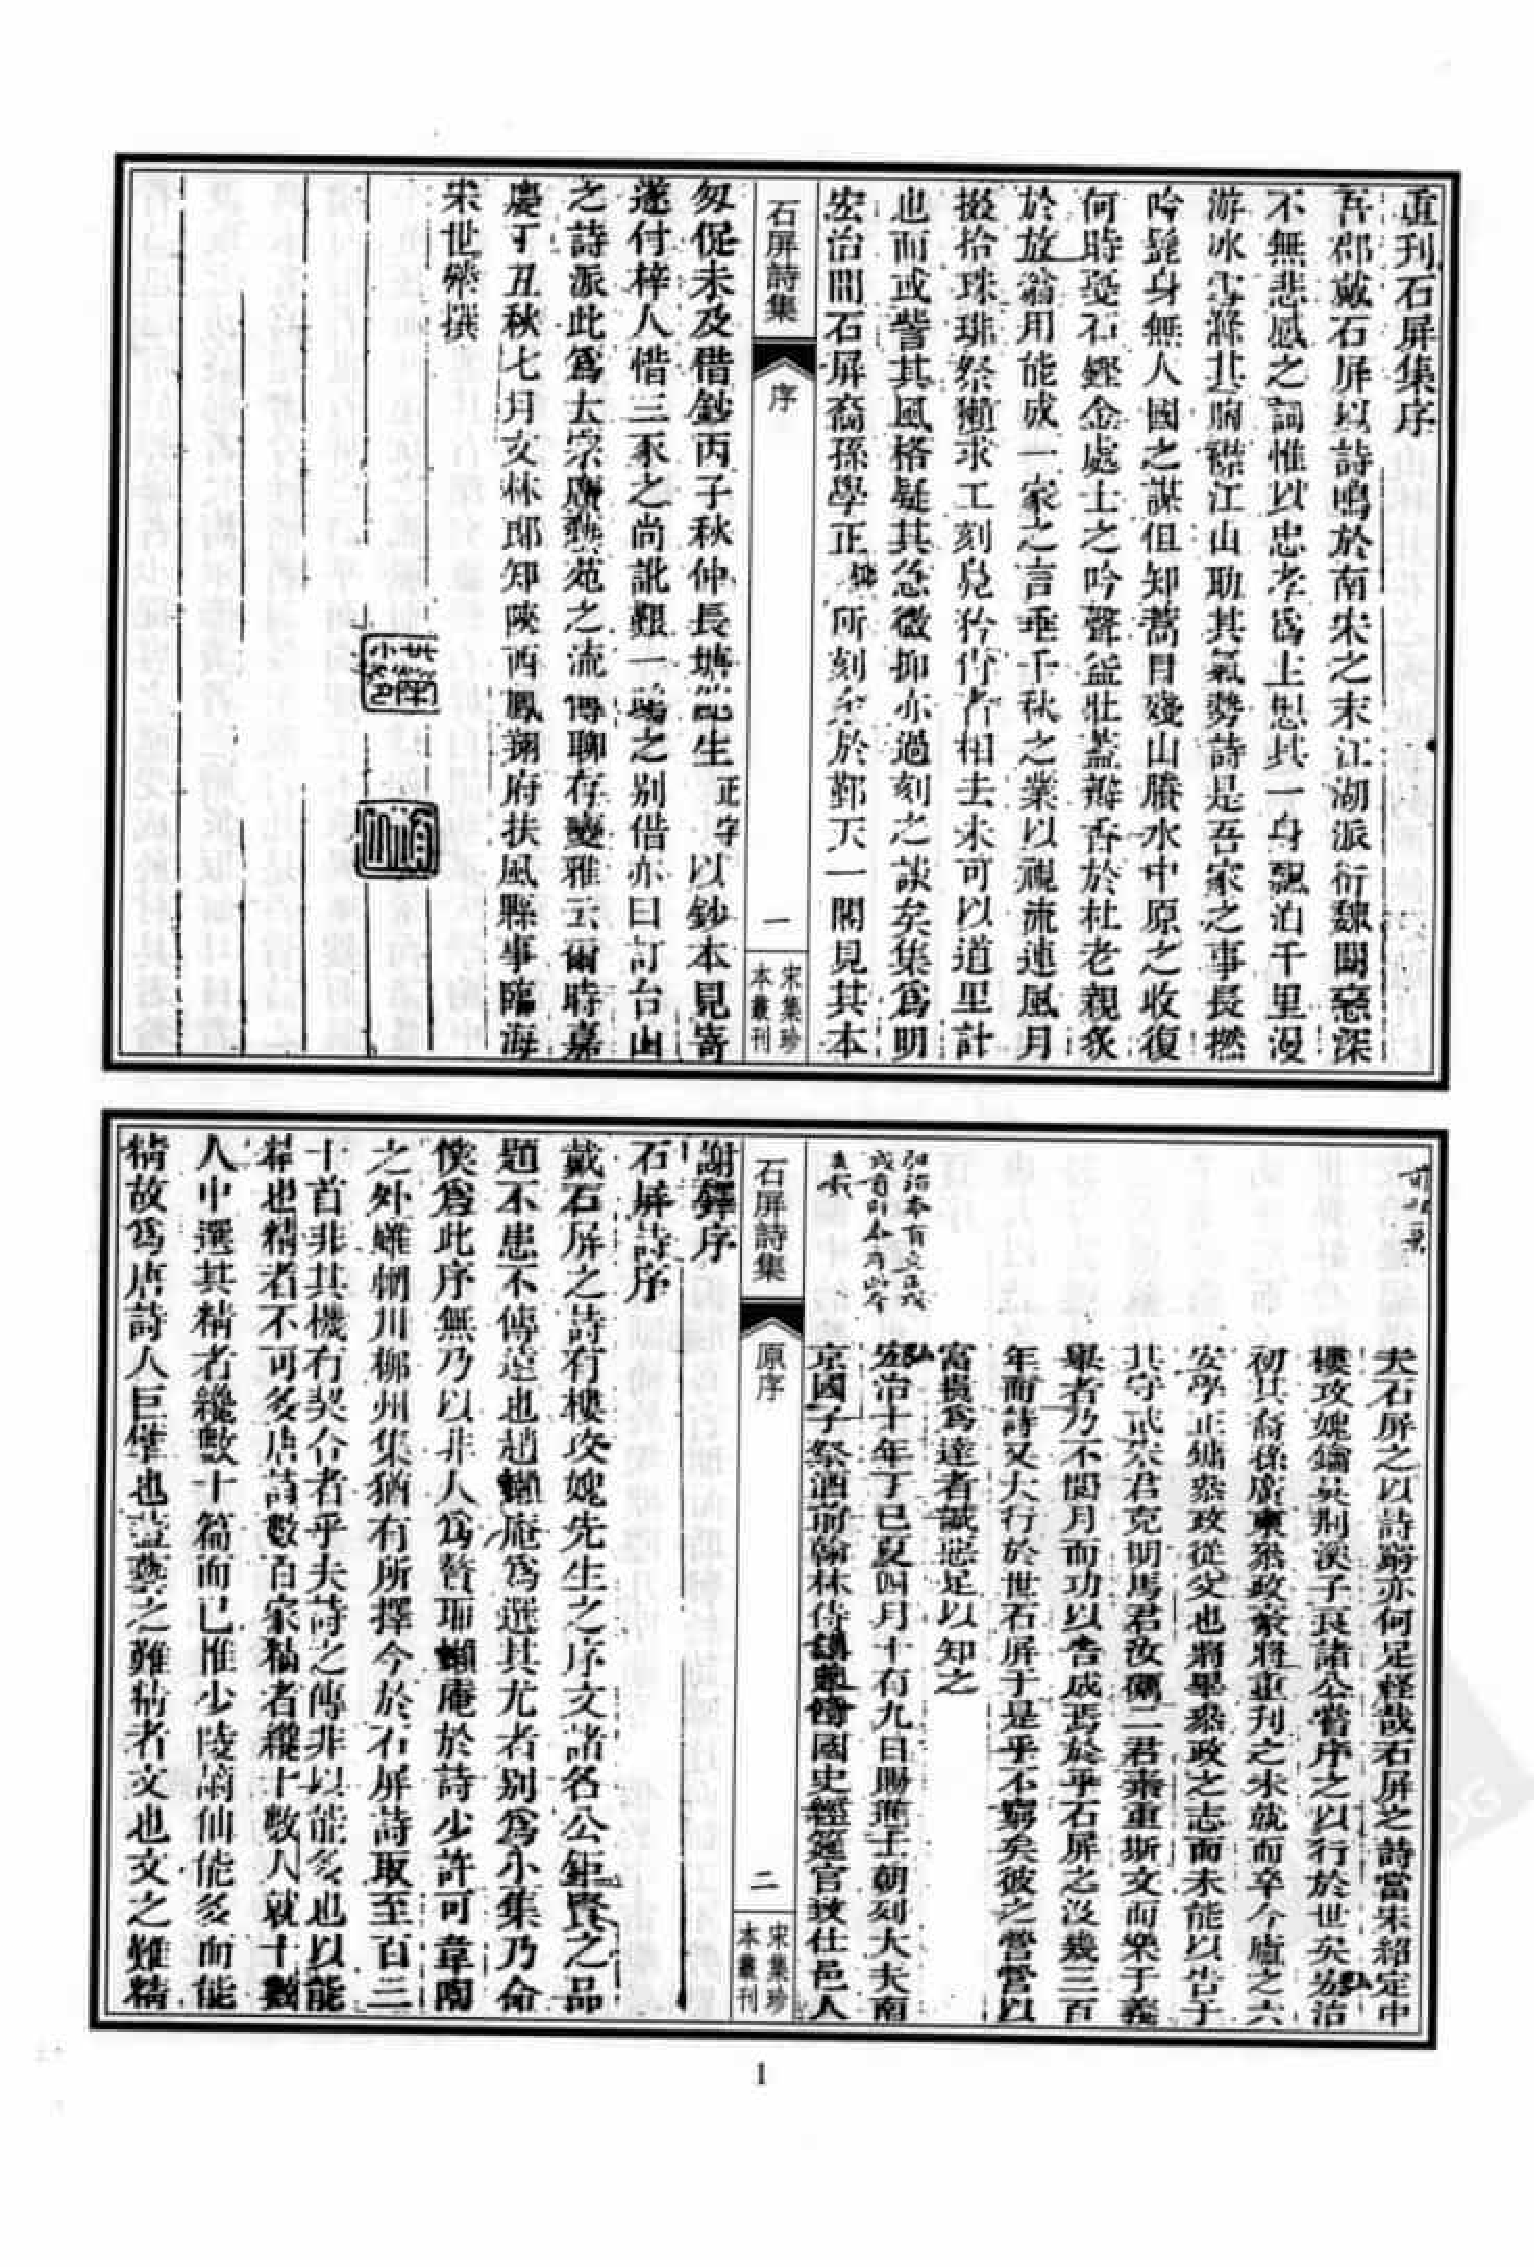 重刊石屏集序
吾郡戴石屏以詩鳴於南宋之末江湖派衍魏闕戀深
不無悲感之詞惟以忠孝爲上想其一身飄泊千里漫
游冰雪滌其胸襟江山助其氣勢詩是吾家之事長撚
吟髭身無人國之謀但知蒿目殘山賸水中原之收復
何時戞石鏗金處士之吟聲益壯蓋瓣香於杜老親炙
於放翁用能成一家之言垂千秋之業以視流連風月
掇拾珠琲祭獺求工刻鳧矜肖者相去未可以道里計
也而或訾其風格疑其急微抑亦過刻之談矣集爲明
宏治間石屏裔孫學正鏞所刻余於鄞天一閣見其本
石屏詩集
序
一
宋集珍
本叢刊
匆促未及借鈔丙子秋仲長塘鮑生正字以鈔本見寄
遂付梓人惜三豕之尚訛艱一鴟之別借亦曰訂台山
之詩派此爲大宗廣藝苑之流傳聊存變雅云爾時嘉
慶丁丑秋七月文林郎知陝西鳳翔府扶風縣事臨海
宋世犖撰
夫石屏之以詩窮亦何足怪哉石屏之詩當宋紹定中
樓攻媿鑰吳荆溪子良諸公嘗序之以行於世矣宏治
初其裔孫廣東叅政豪將重刊之未就而卒今廬之六
安學正鏞叅政從父也將畢叅政之志而未能以告于
其守武宗君克明馬君汝礪二君素重斯文而樂于義
舉者乃不閱月而功以告成焉於乎石屏之沒幾三百
年而詩又大行於世石屏于是乎不窮矣彼之營營以
富貴爲達者誠惡足以知之
宏治十年丁巳夏四月十有九日賜進士朝列大夫南
京國子祭酒前翰林侍講兼修國史經筵官致仕邑人
石屏詩集
原序
二
宋集珍
本叢刊
謝鐸序
石屏詩序
戴石屏之詩有樓攻媿先生之序文諸名公鉅賢之品
題不患不傳遠也趙懶庵爲選其尤者別爲小集乃命
僕爲此序無乃以非人爲贅耶懶庵於詩少許可韋陶
之外雖輞川柳州集猶有所擇今於石屏詩取至百三
十首非其機有契合者乎夫詩之傳非以能多也以能
精也精者不可多唐詩數百家精者纔十數人就十數
人中選其精者纔數十篇而已惟少陵謫仙能多而能
精故爲唐詩人巨擘也蓋藝之難精者文也文之難精
1